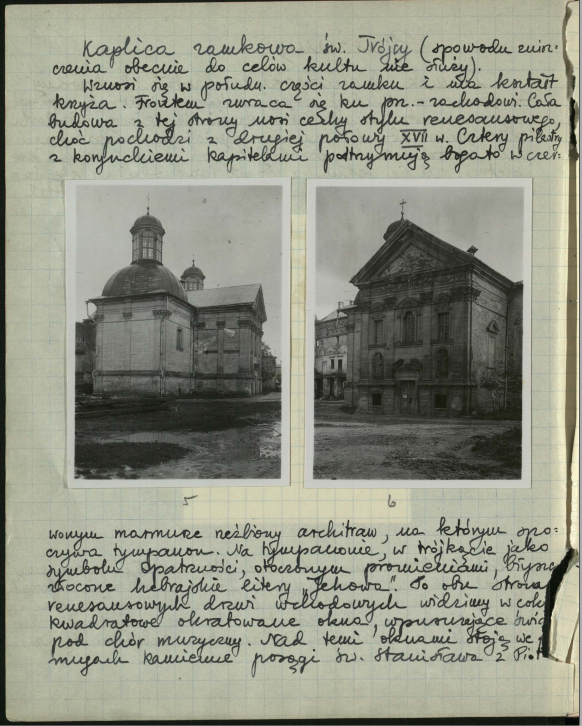 Kaplica zamkowa św. Trójcy (spowodu znisz=
czenia obecnie do celów kultu nie służy).
Wznosi się w połudn. części zamku i ma kształt
krzyża. Frontem zwraca się ku pn.-zachodowi. Cała
budowa z tej strony nosi cechy stylu renesansowego,
choć pochodzi z drugiej połowy XVII w. Cztery pilastry
z korynckiemi kapitelami podtrzymują bogato w czer=
5
6
wonym marmurze rzeźbiony architraw, na którym spo=
czywa tympanon. Na tympanonie, w trójkącie jako
symbolu Opatrzności, otoczonym promieniami,
złocone hebrajskie litery „Jehowa". Po obu
renesansowych drzwi wchodowych widzimy w
kwadratowe okratowane okna, wpuszczające
pod chór muzyczny. Nad temi oknami stoją we
kamienne posągi św. Stanisława z